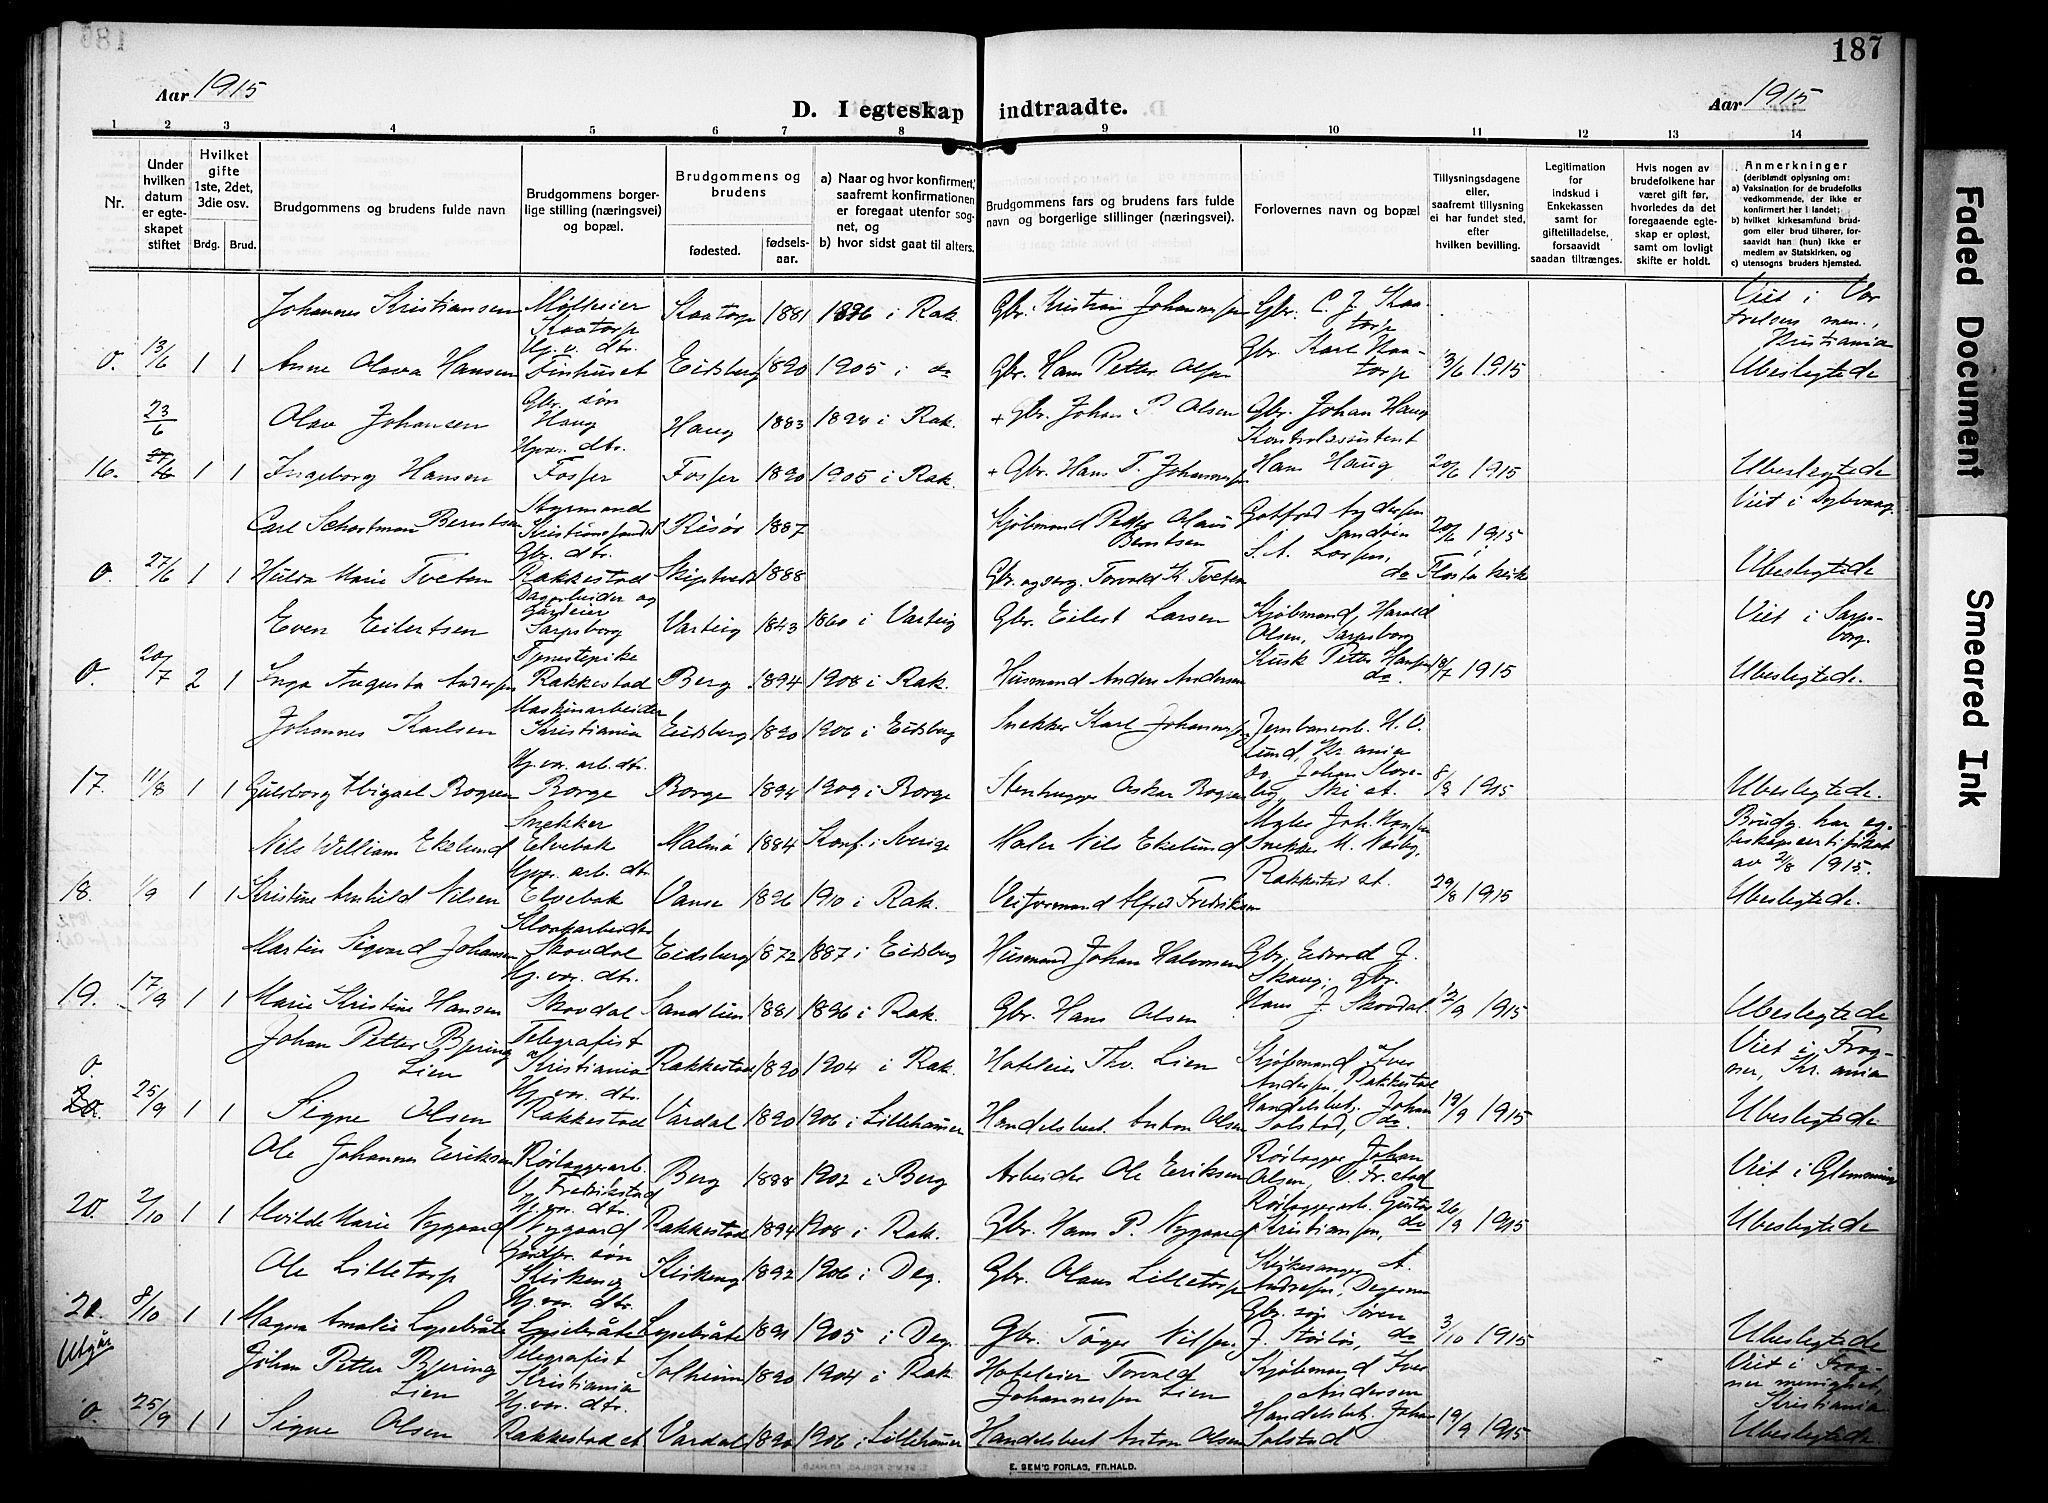 187
Aar 1915
Aar 1915
D. I egteskap indtraadte.
1 2 3 4 5 6 7 8 9 10 11 12 13 14
Nr.
Under hvilken datum er egteskapet stiftet
Hvilket gifte 1ste, 2det, 3die osv.
Brdg. Brud.
Brudgommens og brudens fulde navn
Brudgommens borgerlige stilling (næringsvei) og bopæl.
Brudgommens og brudens
fødested. fødselsaar.
a) Naar og hvor konfirmert, saafremt konfirmationen er foregaat utenfor sognet, og
b) hvor sidst gaat til alters.
Brudgommens fars og brudens fars fulde navn og borgerlige stillinger (næringsvei).
Forlovernes navn og bopæl
Tillysningsdagene eller, saafremt tillysning ei har fundet sted, efter hvilken bevilling.
Legitimation for indskud i Enkekassen samt for giftetilladelse, forsaavidt saadan tiltrænges.
Hvis nogen av brudefolkene har været gift før, hvorledes da det foregaaende egteskap er opløst, samt om lovligt skifte er holdt.
Anmerkninger
(deriblandt oplysning om:
a) Vaksination for de brudefolks vedkommende, der ikke er konfirmert her i landet;
b) hvilket kirkesamfund brudgom eller brud tilhører, forsaavidt han (hun) ikke er medlem av Statskirken, og
c) utensogns bruders hjemsted.
Johannes Kristiansen Kaatorp 1881 1896 i Rak. Gbr. Kristian Johannessen Gbr. C. J. Kaatorp Viet i Vor Frelsers men., Kristiania
0. 13/6 1 1 Anne Olava Hansen Hj.v. dtr. Finhuset Eidsberg 1890 1905 i do Gbr. Hans Petter Olsen Gbr. Karl Kaatorp 13/6 1915 Ubeslegtede
23/6 Olav Johansen Gbr. søn Haug Haug 1883 1898 i Rak. + Gbr. Johan P. Olsen Gbr. Johan Haug
16. 1 1 Ingeborg Hansen Hj.v. dtr. Fosser Fosser 1890 1905 i Rak. + Gbr. Hans T. Johannessen Kontrolassistent Hans Haug 20/6 1915 Ubeslegtede
Carl Schortman Berntsen Styrmand Kristianssand Risör 1887 Kjöbmand Petter Olaus Berntsen Gotfred Andersen Sandvin 20/6 1915 Viet i Dybvaag
0. 27/6 1 1 Hulda Marie Tveten Gbr. dtr. Rakkestad Skiptvedt 1888 Gbr. og serg. Torvald K. Tveten S. A. Larsen, do i Flosta kirke Ubeslegtede
Even Eilertsen Dagarbeider og gardeier Sarpsborg Varteig 1843 1860 i Varteig Gbr. Eilert Larsen Kjöbmand Harald Olsen, Sarpsborg Viet i Sarpsborg.
0. 20/7 2 1 Inga Augusta Andersen Tjenestepike Rakkestad Berg 1894 1908 i Rak. Husmand Anders Andersen Kusk Petter Hansen do. 18/7 1915 Ubeslegtede.
Johannes Karlsen Maskinarbeider Kristiania Eidsberg 1890 1906 i Eidsberg Snekker Karl Johannessen Jernbanearb. H. O. Lund, Kr.ania
17. 11/8 1 1 Gulborg Abigael Rogsen Hj.var. arb. dtr. Borge Borge 1894 1909 i Borge Stenhugger Oskar Rogsen do. Johan Skreberg, Ski st. 8/8 1915 Ubeslegtede.
Nils William Ekelund Snekker Elvebak Malmö 1884 Konf. i Sverige Maler Nils Ekelund Maler Joh. Hansen Brudg. har egteskapscertifikat av 2/8 1915.
18. 1/9 1 1 Kristine Arnhild Nilsen Hj.v. arb. dtr. Elvebak Vanse 1896 1910 i Rak. Veiformand Alfred Fredriksen Snekker M. Næsby, Rakkestad st. 29/8 1915 Ubeslegtede.
Martin Sigvard Johansen Skovarbeider Skovdal Eidsberg 1872 1887 i Eidsberg Husmand Johan Halvorsen Gbr. Edvard J. Skaug, gbr.
19. 17/9 1 1 Marie Kristine Hansen Hj.var. dtr. Skovdal Sandlien 1881 1896 i Rak. Gbr. Hans Olsen Hans J. Skovdal 12/9 1915 Ubeslegtede
Johan Petter Bjering Lien Telegrafist Kristiania Rakkestad 1890 1904 i Rak. Hoteleier Thv. Lien Kjöbmand Iver Andersen, Rakkestad Viet i Frogner, Kr.ania
0. 20. 25/9 1 1 Signe Olsen Hj.var. dtr. Rakkestad Vardal 1890 1906 i Lillehamer Handelsbest. Anton Olsen Handelsbet. Johan Solstad, do. 19/9 1915 Ubeslegtede
Ole Johannes Eriksen Rörlæggerarb. V. Fredrikstad Berg 1888 1902 i Berg Arbeider Ole Eriksen Rörlægger Johan Olsen, V. Fr.stad Viet i Glemminge
20. 2/10 1 1 Alvilde Marie Nygaard Hj.var. dtr. Nygaard Rakkestad 1894 1908 i Rak. Gbr. Hans P. Nygaard Rörlæggerarb. Gustav Kristiansen, do 26/9 1915 Ubeslegtede
Ole Lilletorp Gårdbr. søn Kirkeng Kirkeng 1892 1906 i Deg. Gbr. Olaus Lilletorp Kirkesanger A. Andresen, Degernes
8/10 1 1 Magna Amalie Lysebråte Hj.var. dtr. Lysebråte Lysebråte 1891 1905 i Deg. Gbr. Törger Nilssen Gbr. søn Søren J. Störlös, do 3/10 1915 Ubeslegtede
Utgår
Johan Petter Bjering Lien Telegrafist Kristiania Solheim 1890 1904 i Rak Hoteleier Torvald Johannessen Lien Kjöbmand Iver Andersen Viet i Frogner menighet, Kristiania
0. 25/9 1 1 Signe Olsen Hj.var. dtr. Rakkestad st Vardal 1890 1906 i Lillehamer Handelsbest Anton Olsen Handelsbet. Johan Solstad 19/9 1915 Ubeslegtede.
E. SEM'S FORLAG, FR.HALD.
Faded Document
Smeared Ink